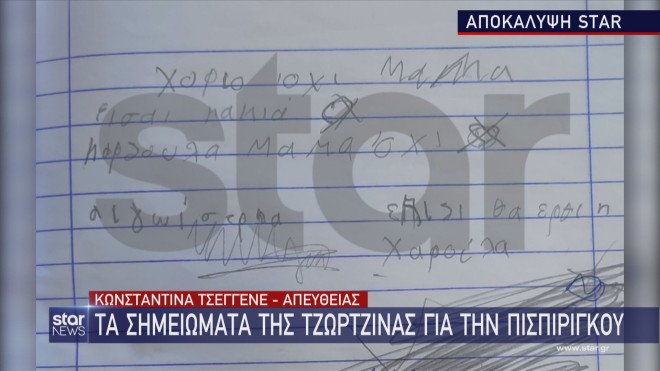 ΑΠΟΚΑΛΥΨΗ STAR
χοριο όχι μαμα
ισαι κακιά
μαμα όχι
star
επισι θα ερθι η
Χαρούλα
ΚΩΝΣΤΑΝΤΙΝΑ ΤΣΕΓΓΕΝΕ - ΑΠΕΥΘΕΙΑΣ
star NEWS
ΤΑ ΣΗΜΕΙΩΜΑΤΑ ΤΗΣ ΤΖΩΡΤΖΙΝΑΣ ΓΙΑ ΤΗΝ ΠΙΣΠΙΡΙΓΚΟΥ
www.star.gr